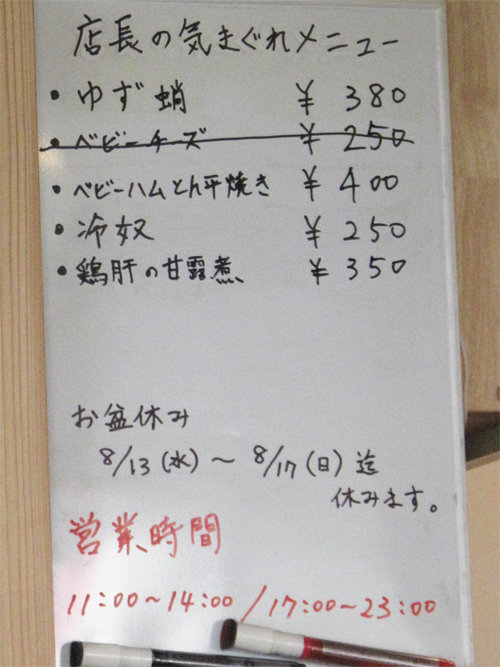 店長の気まぐれメニュー
・ゆず蛸 ¥380
・ベビーチーズ ¥250
・ベビーハムとん平焼き ¥400
・冷奴 ¥250
・鶏肝の甘露煮 ¥350
お盆休み
8/13(水)～8/17(日)迄
休みます。
営業時間
11:00～14:00/17:00～23:00